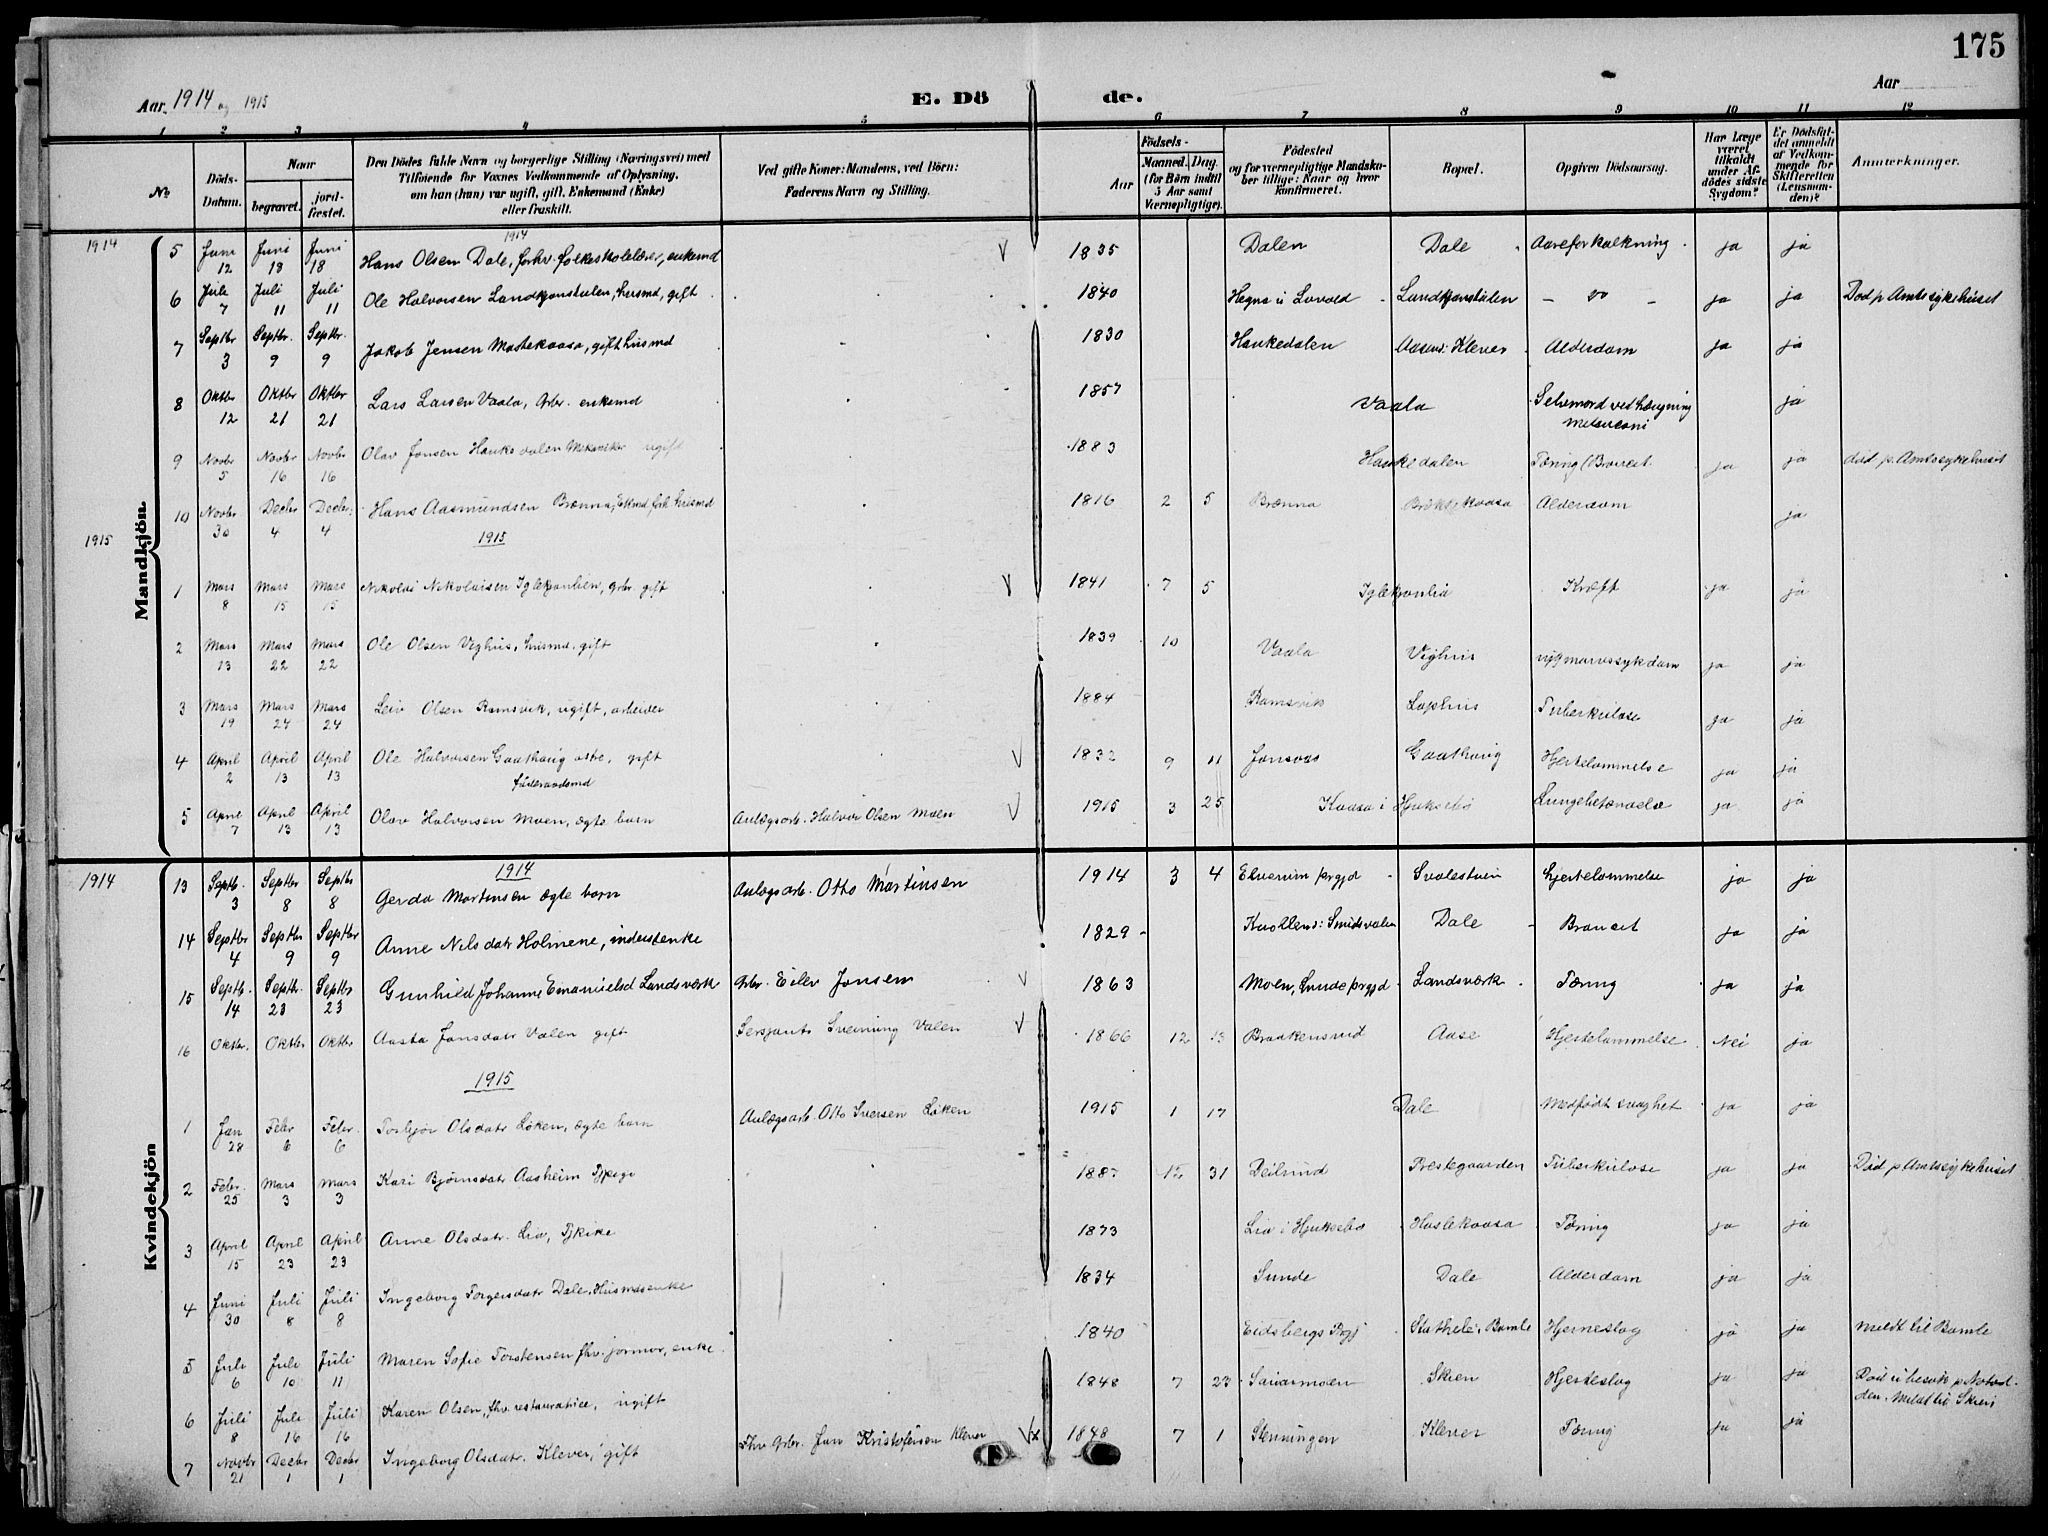 175
Aar 1914 og 1915
E. Dö de.
Aar
1 2 3 4 5 6 7 8 9 10 11 12
No.
Döds-Datum.
Naar
begravet.
jord-fæstet.
Den Dödes fulde Navn og borgerlige Stilling (Næringsvei) med
Tilföiende for Voxnes Vedkommende af Oplysning,
om han (hun) var ugift, gift, Enkemand (Enke)
eller fraskilt.
Ved gifte Koner: Mandens, ved Börn:
Faderens Navn og Stilling.
Födsels-
Aar
Maaned. Dag.
(for Börn indtil
5 Aar samt
Værnepligtige).
Födested
og for værnepligtige Mandska-
ber tillige: Naar og hvor
konfirmeret.
Bopæl.
Opgiven Dödsaarsag.
Har Læge
været
tilkaldt
under Af-
dödes sidste
Sygdom?
Er Dödsfal-
det anmeldt
af Vedkom-
mende for
Skifteretten
(Lensman-
den)?
Anmærkninger.
Mandkjön.
1914
1914
5 Juni 12 Juni 18 Juni 18 Hans Olsen Dale, forhv. folkeskolelærer, enkemd V 1835 Dalen Dale Aareforkalkning ja ja
6 Juli 7 Juli 11 Juli 11 Ole Halvorsen Landkjønstulen, husmd, gift 1840 Hegna i Lovald Landkjønstulen - " - ja ja Død p. Amtssykehuset
7 Septbr 3 Septbr. 9 Septbr. 9 Jakob Jensen Mastekaasa, gift husmd 1830 Haukedalen Aasen i Klever Alderdom ja ja
8 Oktbr 12 Oktbr 21 Oktbr 21 Lars Larsen Vaala, Grbr. enkemd 1857 Vaala Selvmord ved hængning
ja
9 Novbr 5 Novbr 16 Novbr 16 Olav Jonsen Haukedalen Mekaniker ugift 1883 Haukedalen Tæring (Brucet ja ja død p. Amtssykehuset
10 Novbr 30 Decbr 4 Decbr. 4 Hans Aasmundsen Brænna, Ekmd, forh. husmd 1816 2 5 Brænna Alderdom ja
1915
1915
1 Mars 8 Mars 15 Mars 15 Nikolai Nikolaisen Iglekjønlien, grbr. gift V 1841 7 5 Iglekjønlia Kræft ja ja
2 Mars 13 Mars 22 Mars 22 Ole Olsen Veghus, husmd. gift 1839 10 Vaala Veghus rygmarvssykdom ja ja
3 Mars 19 Mars 24 Mars 24 Leiv Olsen Ramsvik, ugift, arbeider 1884 Ramsvik Lophus Tuberkulose ja ja
4 April 2 April 13 April 13 Ole Halvorsen Gaathaug østre, gift V 1832 9 11 Jonsaas Gaathaug Hjertelammelse ja ja
føderaadsmd
5 April 7 April 13 April 13 Olav Halvorsen Moen, ægte barn Anlægsarb. Halvor Olsen Moen V 1915 3 25 Kaasa i Hjuksebø Lungebetændelse ja ja
Kvindekjön
1914
1914
13 Septb. 3 Septbr 8 Septbr 8 Gerda Martinsen ægte barn Anlægsarb. Otto Martinsen 1914 3 4 Elverum prgjd Svalestuen hjertelammelse ja ja
14 Septbr 4 Septbr 9 Septbr 9 Anne Nilsdatr Holmene, inderstenke 1829 Knollen i Smidsvalen Dale Brandset ja ja
15 Septb. 14 Septb. 23 Septbr 23 Gunhild Johanne Emanuelsd Landsværk Grbr. Eilev Jonsen V 1863 Moen, Lunde prgjd Landsværk Tæring ja ja
16 Oktbr. Oktbr Oktbr Aasta Jonsdatr Valen gift Sersjant Sveinung Valen V 1866 12 13 Braakensrud Aase Hjertelammelse Nei ja
1915
1 Jan 28 Febr 6 Febr. 6 Torbjør Olsdatr Løken, ægte barn Anlægsarb. Otto Iversen Løken 1915 1 17 Dale Medfødt svaghet ja ja
2 Febr. 25 Mars 3 Mars 3 Kari Bjørnsdatr Aasheim Tjpige 188 12 31 Deilrind Prestegaarden Tuberkulose ja ja Død p. Amtssykehuset
3 April 15 April 23 April 23 Anne Olsdatr. Lia, Tjpike 1873 Lia i Hjuksebø Haslekaasa Tæring ja ja
4 Juni 30 Juli 8 Juli 8 Ingeborg Torgersdatr Dale, Husmdsenke 1834 Sunde Dale Alderdom ja ja
5 Juli 6 Juli 10 Juli 11 Maren Sofie Torstensen fhv. jormor, enke 1840 Eidsbergs Prgj Stathele i Bamle Hjerneslag ja ja meldt til Bamle
6 Juli 8 Juli 16 Juli 16 Karen Olsen, fhv. restauratrice, ugift 1848 7 23 Skien Hjerteslag ja ja Død i besøk p Notod-
den. Meldt til Skien
7 Novbr 21 Decbr 1 Decbr 1 Ingeborg Olsdatr. Klever, gift Fhv. Grbr. Jan Kristofersen Klever Vx 1848 7 1 Stenningen Klever Tæring ja ja